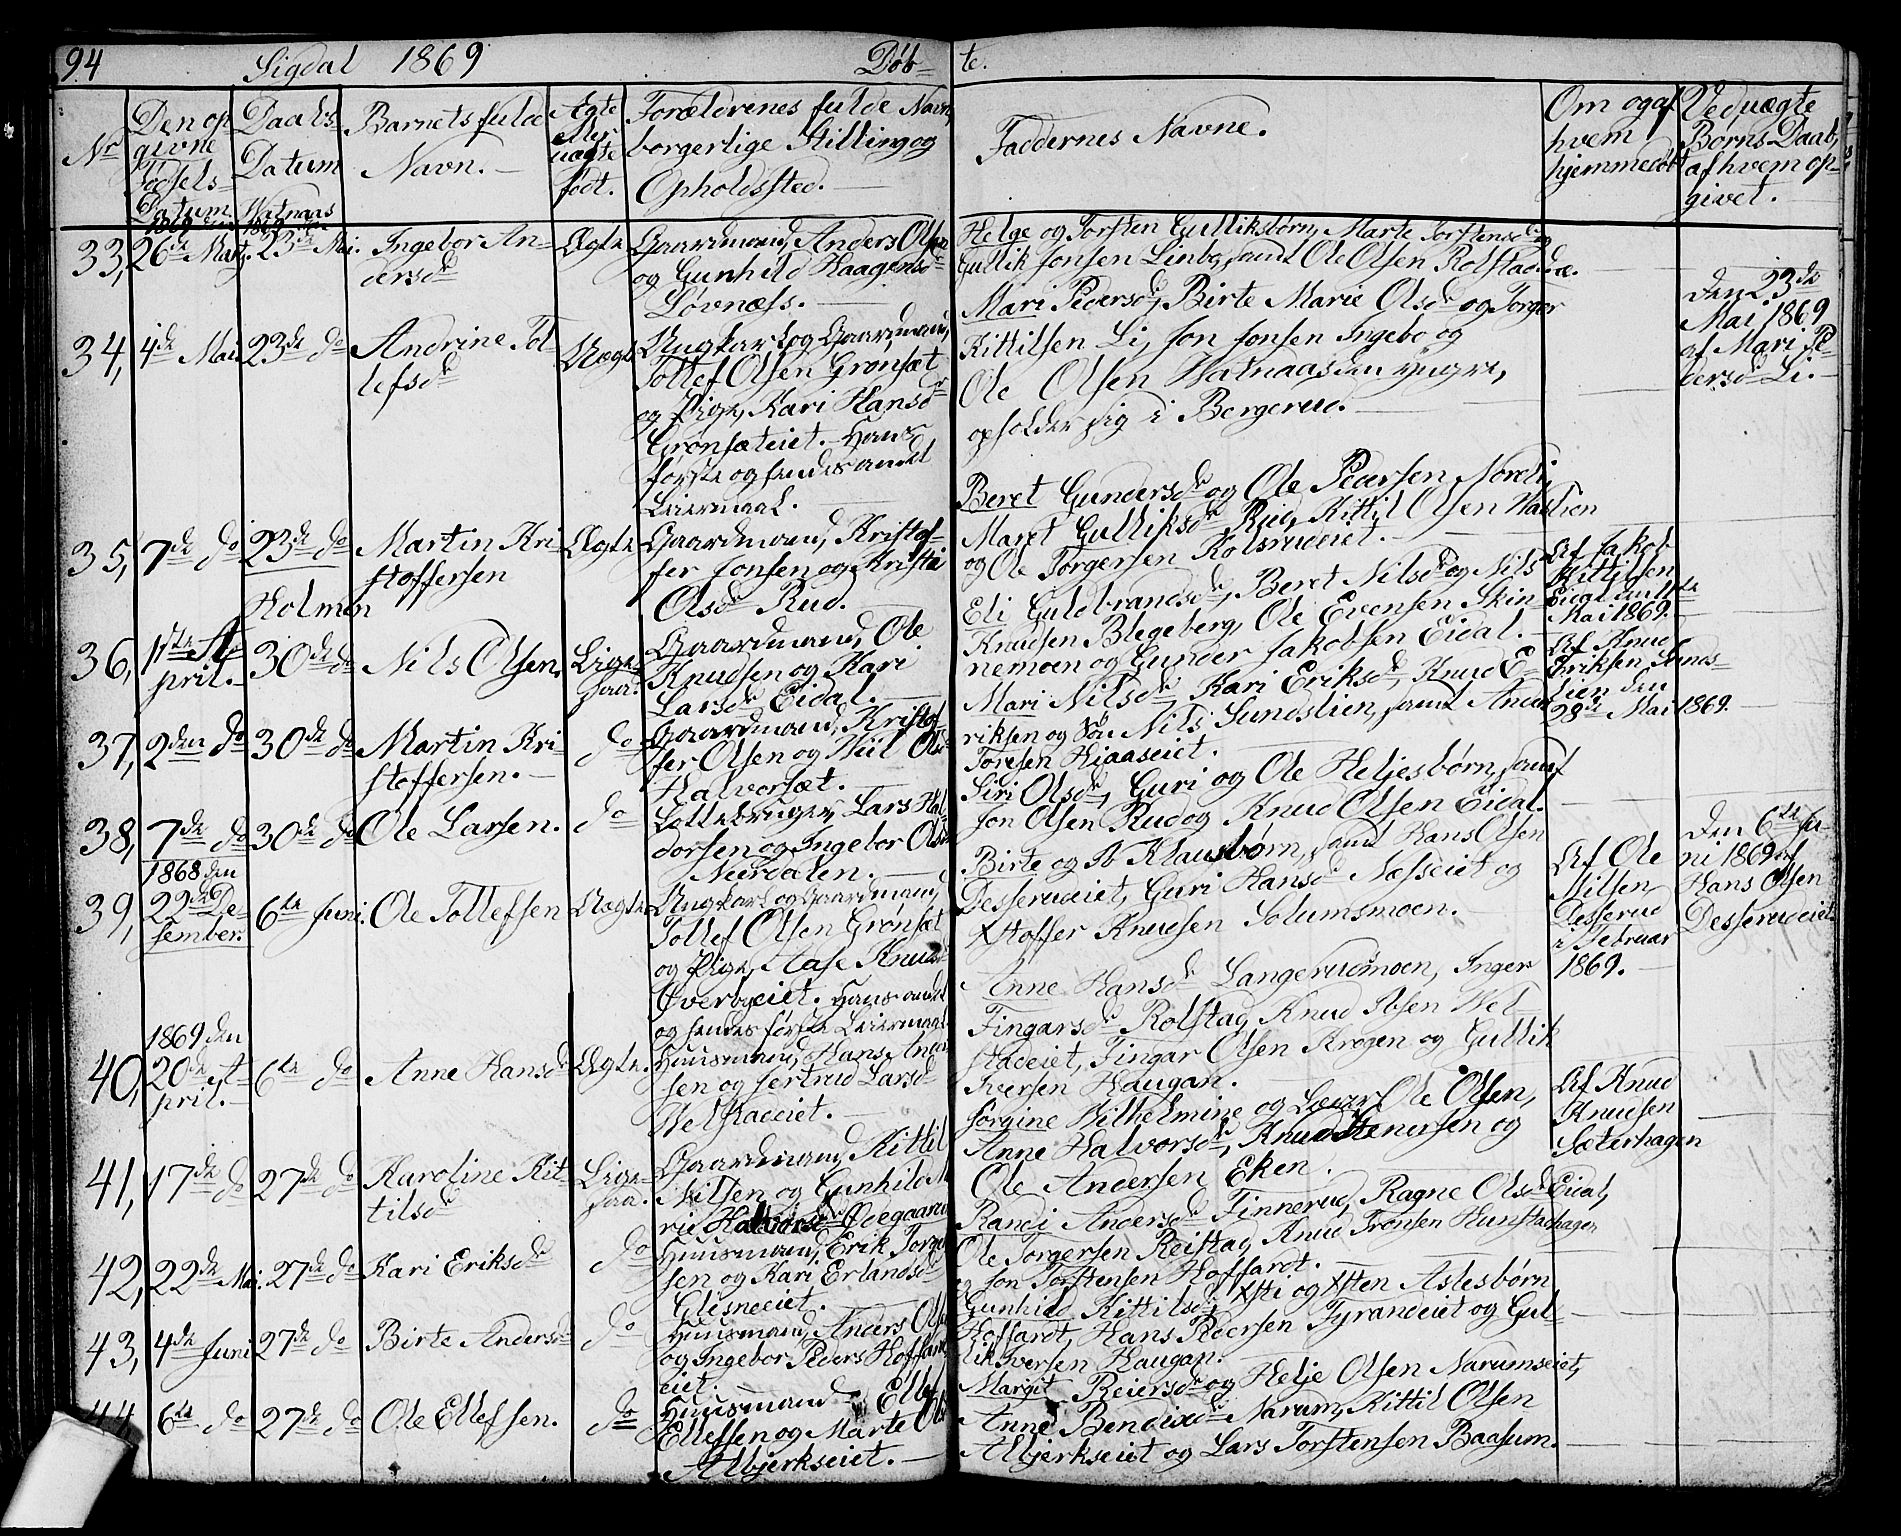 94 Sigdal 1869 Døb-
te.
No
Den op
givne
Fødsels-
Datum.
Daabs-
Datum
Watnaas
Barnets fulde
Navn. —
Ægte
eller
uægte
født.
Forældrenes fulde Navn,
borgerlige Stilling og
Opholdssted. —
Faddernes Navne.
Om og af
hvem
hjemmedøbt
Ved uægte
Børns Daab,
af hvem op-
givet. —
1869 den
1869 den
33, 26de Marts. 23de Mai. Ingebor An-
dersdr
Ægte
Gaardmand, Anders Olsen
og Gunhild Haagensdr
Løvnæss. —
Helge og Torsten Gulliksbørn, Marte Torstensdr og
Gullik Jonsen Linbo, samt Ole Olsen Rolstad
34, 4de Mai 23de do Andrine Tol-
lefsdr
Uægte
Ungkarl og Gaardmand,
Tollef Olsen Grønsæt
og Pige, Kari Hansdr
Grønsæteiet. Hans
første og hendes andet
Leiermaal. —
Mari Pedersdr, Birte Marie Olsdr og Torger
Kittilsen Li, Jon Jonsen Ingebo og
Ole Olsen Watnaas den yngre,
opholder sig i Bergerud. —
Den 23de
Mai 1869
af Mari Pe-
dersdr Li. —
35, 7de do 23de do Martin Kri-
stoffersen
Ægte
Gaardmand, Kristof-
fer Jonsen og Kristi
Olsdr Rud. —
Beret Gundersdr og Ole Pedersen Nordli,
Maret Gulliksdr Rud, Kittil Olsen
og Ole Torgersen Kolsrudeiet. —
Holmen
36, 11te A-
pril. —
30de do Nils Olsen. Lige-
saa.
Gaardmand, Ole
Knudsen og Kari
Larsdr Eidal. —
Eli Guldbrandsdr, Beret Nilsdr og Nils
Knudsen Blegeberg, Ole Evensen Skin-
nemoen og Gunder Jakobsen Eidal. —
Af Jakob
Kittilsen
Eidal den 11te
Mai 1869.
37, 2den do 30de do Martin Kri-
stoffersen. —
do
Gaardmand, Kristof-
fer Olsen og Kiil Olsdr
Halvorsæt. —
Mari Nilsdr, Kari Eriksdr, Knud E-
riksen og Søn Nils Sundslien, samt
Toresen Hiaaseiet. —
Af Knud
Eriksen Sunds-
lien den
28de Mai 1869. —
38, 7de do 30de do Ole Larsen. do
Lottebruger, Lars Hal-
dorsen og Ingebor Olsdr
Nerdalen. —
Siri Olsdr, Guri og Ole Heljesbørn, samt
Jon Olsen Rud og Knud Olsen Eidal.
1868 den
39, 22de De-
sember.
6te Juni. Ole Tollefsen Uægte
Ungkarl og Gaardmand,
Tollef Olsen Grønsæt
og Pige, Aase Knudsdr
Øverbyeiet. Hans andet
og hendes første Leiermaal.
Birte og Ib Klausbørn, samt Hans Olsen
Desserudeiet, Guri Hansdr Næsseiet og
Xstoffer Knudsen Solumsmoen.
Af Ole
Nilsen
Desserud
i Februar
1869. —
Den 6te Ju-
ni 1869 af
Hans Olsen
Desserudeiet
1869 den
40, 20de A-
pril. —
6te do Anne Hansdr Ægte.
Huusmand, Hans
sen og Jertrud Larsdr
Welstadeiet. —
Anne Hansdr Langerudmoen, Inger
Fingarsdr Rolstad, Knud Ibsen Wel-
stadeiet, Fingar Olsen Krogen og Gullik
Iversen Haugan. —
41, 17de do 27de do Karoline Kit-
tilsdr
Lige-
saa.
Gaardmand, Kittil
Nilsen og Gunhild Ma-
rie Halvorsdr Ødegaarden
Jørgine Wilhelmine og Ole Olsen,
Anne Halvorsdr, Knud Stenersen og
Ole Andersen Eken.
Af Knud
Knudsen
Sæterhagen
42, 22de Mai. 27de do Kari Eriksdr do
Huusmand, Erik Torger-
sen og Kari Erlandsdr
Glesneeiet. —
Randi Andersdr Finnerud, Ragne Olsdr Eidal,
Ole Torgersen Reistad, Knud Tronsen Hunstadhagen
og Jon Torstensen Hoffart. —
43, 4de Juni 27de do Birte Andersdr do
Huusmand, Anders Olsen
og Ingebor Peders Hoffart-
eiet. —
Gunhild Kittilsdr, Xsti og Xsten Aslesbørn
Hoffart, Hans Pedersen Tyrandeiet og Gul-
lik Iversen Haugan.
44 6te do 27de do Ole Ellefsen. do
Huusmand, Ellef
Ellefsen og Marte Ols
Albjerkseiet. —
Margit Reiersdr og Helje Olsen Narumseiet,
Anne Bendixdr Narum, Kittil Olsen
Albjerkseiet og Lars Torstensen Baasum. —